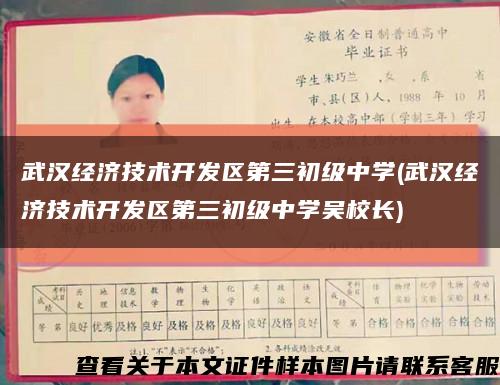 安徽省全日制普通高中
毕业证书
学生朱巧兰 ,女 ,系 省
市、县(区)人, 1988 年 10 月
出生, 在本校高中部(学制三年)学习
武汉经济技术开发区第三初级中学(武汉经
济技术开发区第三初级中学吴校长)
科目 成绩 历史 地理 信息技术 数学 物理 生物 化学 英语 政治 语文
等第 良好 优秀 及格 良好 及格 及格 及格 良好 良好 良好
考查科目 成绩 体育 物理实验 化学实验 生物实验 劳动技术
等第 合格 合格 合格 合格 合格
注:1."不"表示"不合格"; 2.各科成绩涂改无效.
查看关于本文证件样本图片请联系客服